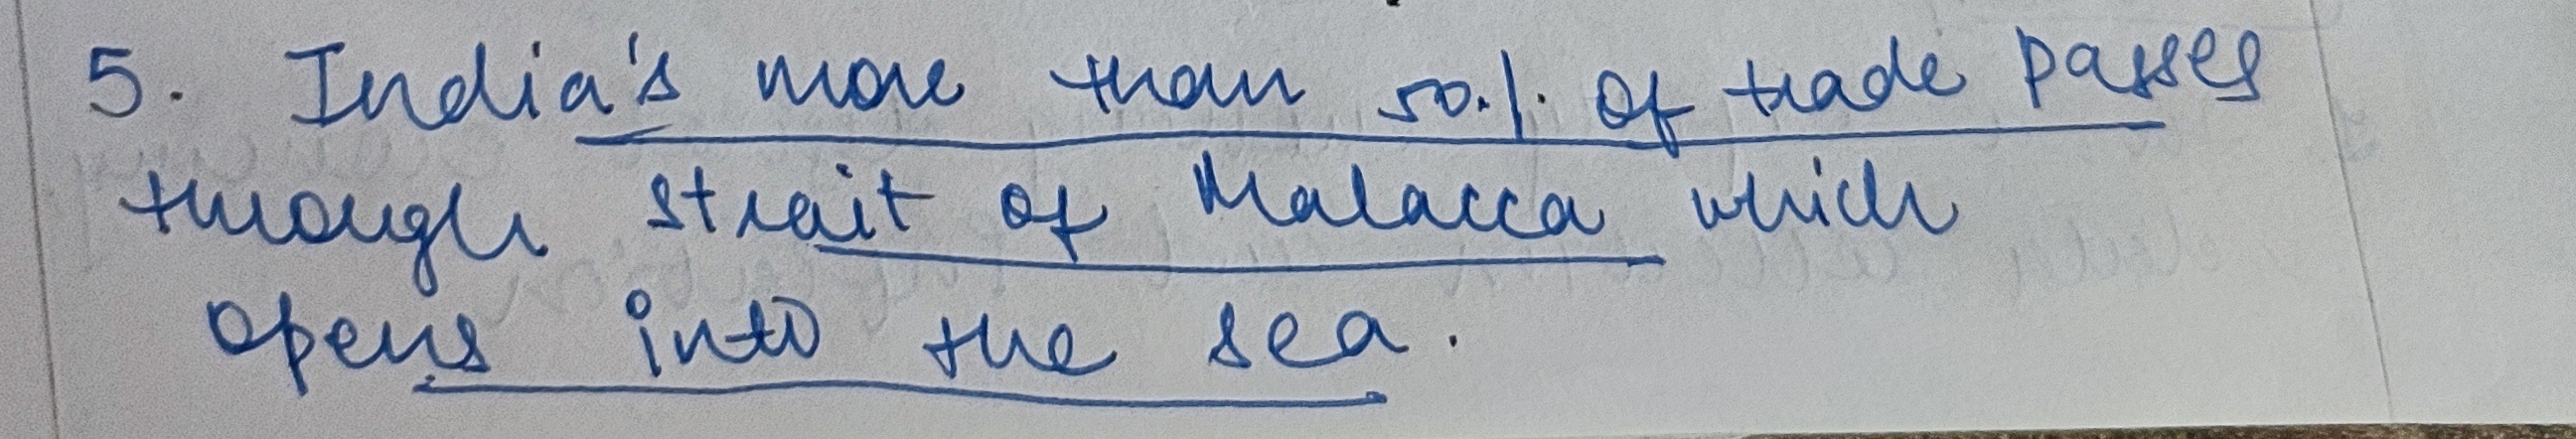 5. India's more than 50% of trade passes
through strait of Malacca which
opens into the sea.